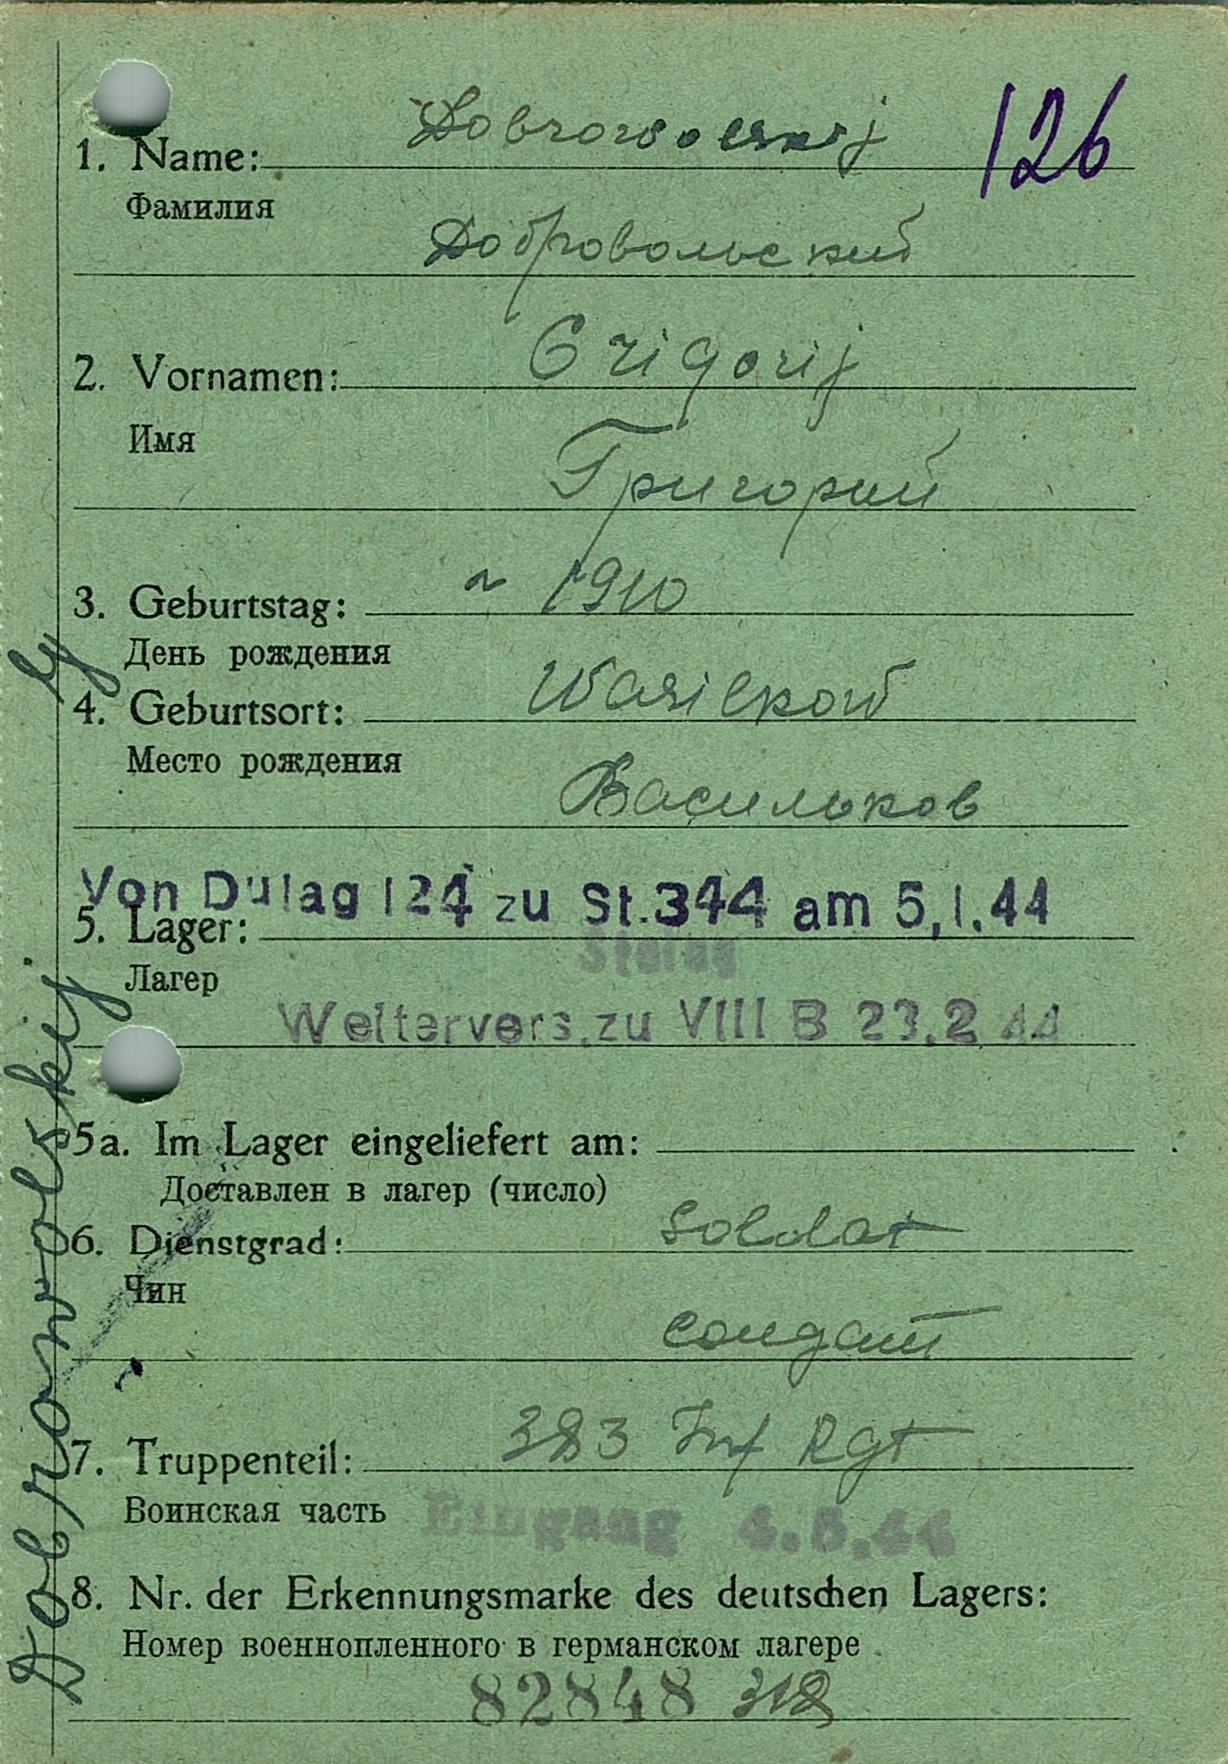 126
1. Name: Dobrowolskij
Фамилия
Добровольский
2. Vornamen: Grigorij
Имя
Григорий
3. Geburtstag: ~ 1910
День рождения
4. Geburtsort: Wasilkow
Место рождения
Васильков
Von Dulag 124 zu St.344 am 5.1.44
5. Lager:
Stalag
Лагер
Weitervers. zu VIII B 23.2 44
5a. Im Lager eingeliefert am:
Доставлен в лагер (число)
6. Dienstgrad: Soldat
Чин
солдат
7. Truppenteil: 383 Inf Rgt
Воинская часть
Eingang 4.5.44
8. Nr. der Erkennungsmarke des deutschen Lagers:
Номер военнопленного в германском лагере
82848 318
Dobrowolskij